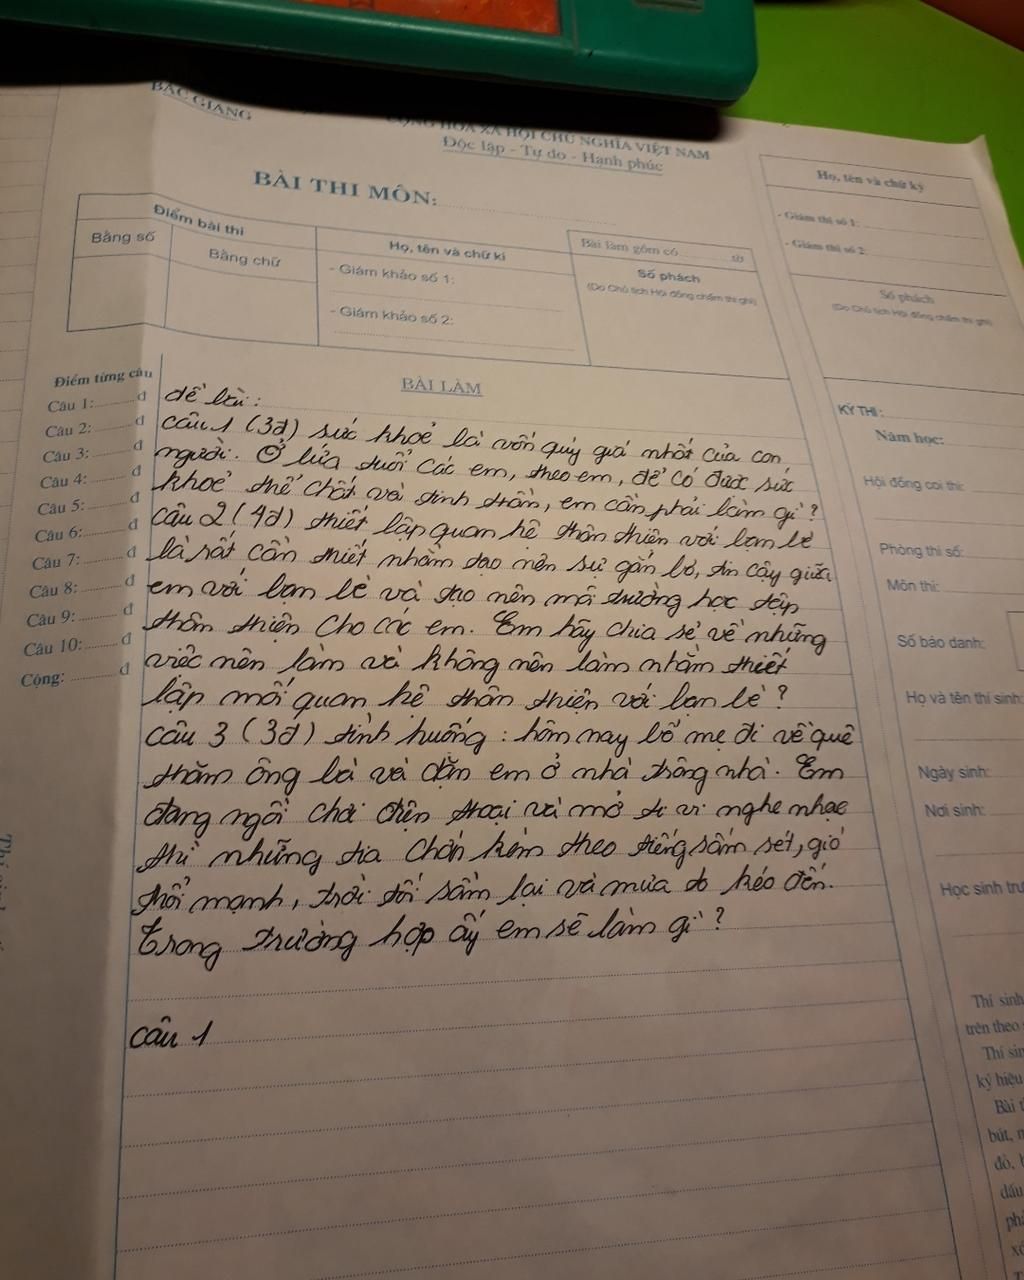 BẮC GIANG
CỘNG HÒA XÃ HỘI CHỦ NGHĨA VIỆT NAM
Độc lập - Tự do - Hạnh phúc
BÀI THI MÔN:
Điểm bài thi
Bằng số
Bằng chữ
Họ, tên và chữ kí
- Giám khảo số 1:
- Giám khảo số 2:
Bài làm gồm có ........ tờ
Số phách
(Do Chủ tịch Hội đồng chấm thi ghi)
Họ, tên và chữ ký
- Giám thị số 1:
- Giám thị số 2:
Số phách
(Do Chủ tịch Hội đồng chấm thi ghi)
Điểm từng câu
Câu 1: ........ đ
Câu 2: ........ đ
Câu 3: ........ đ
Câu 4: ........ đ
Câu 5: ........ đ
Câu 6: ........ đ
Câu 7: ........ đ
Câu 8: ........ đ
Câu 9: ........ đ
Câu 10: ........ đ
Cộng: ........ đ
BÀI LÀM
đề bài:
Câu 1 (3đ) sức khoẻ là vốn quý giá nhất của con
người. Ở lứa tuổi các em, theo em, để có được sức
khoẻ thể chất và tinh thần, em cần phải làm gì?
Câu 2 (4đ) thiết lập quan hệ thân thiện với bạn bè
là rất cần thiết nhằm tạo nên sự gắn bó, tin cậy giữa
em với bạn bè và tạo nên môi trường học tập
thân thiện cho các em. Em hãy chia sẻ về những
việc nên làm và không nên làm nhằm thiết
lập mối quan hệ thân thiện với bạn bè?
Câu 3 (3đ) tình huống: hôm nay bố mẹ đi về quê
thăm ông bà và dặn em ở nhà trông nhà. Em
đang ngồi chơi điện thoại và mở ti vi nghe nhạc
thì những tia chớn kèm theo tiếng sấm sét, gió
thổi mạnh, trời tối sầm lại và mưa to kéo đến.
Trong trường hợp ấy em sẽ làm gì?
Câu 1
KỲ THI:
Năm học:
Hội đồng coi thi:
Phòng thi số:
Môn thi:
Số báo danh:
Họ và tên thí sinh:
Ngày sinh:
Nơi sinh:
Học sinh trư
Thí sinh
trên theo
Thí sin
ký hiệu
Bài t
bút, n
đỏ, b
dấu
phá